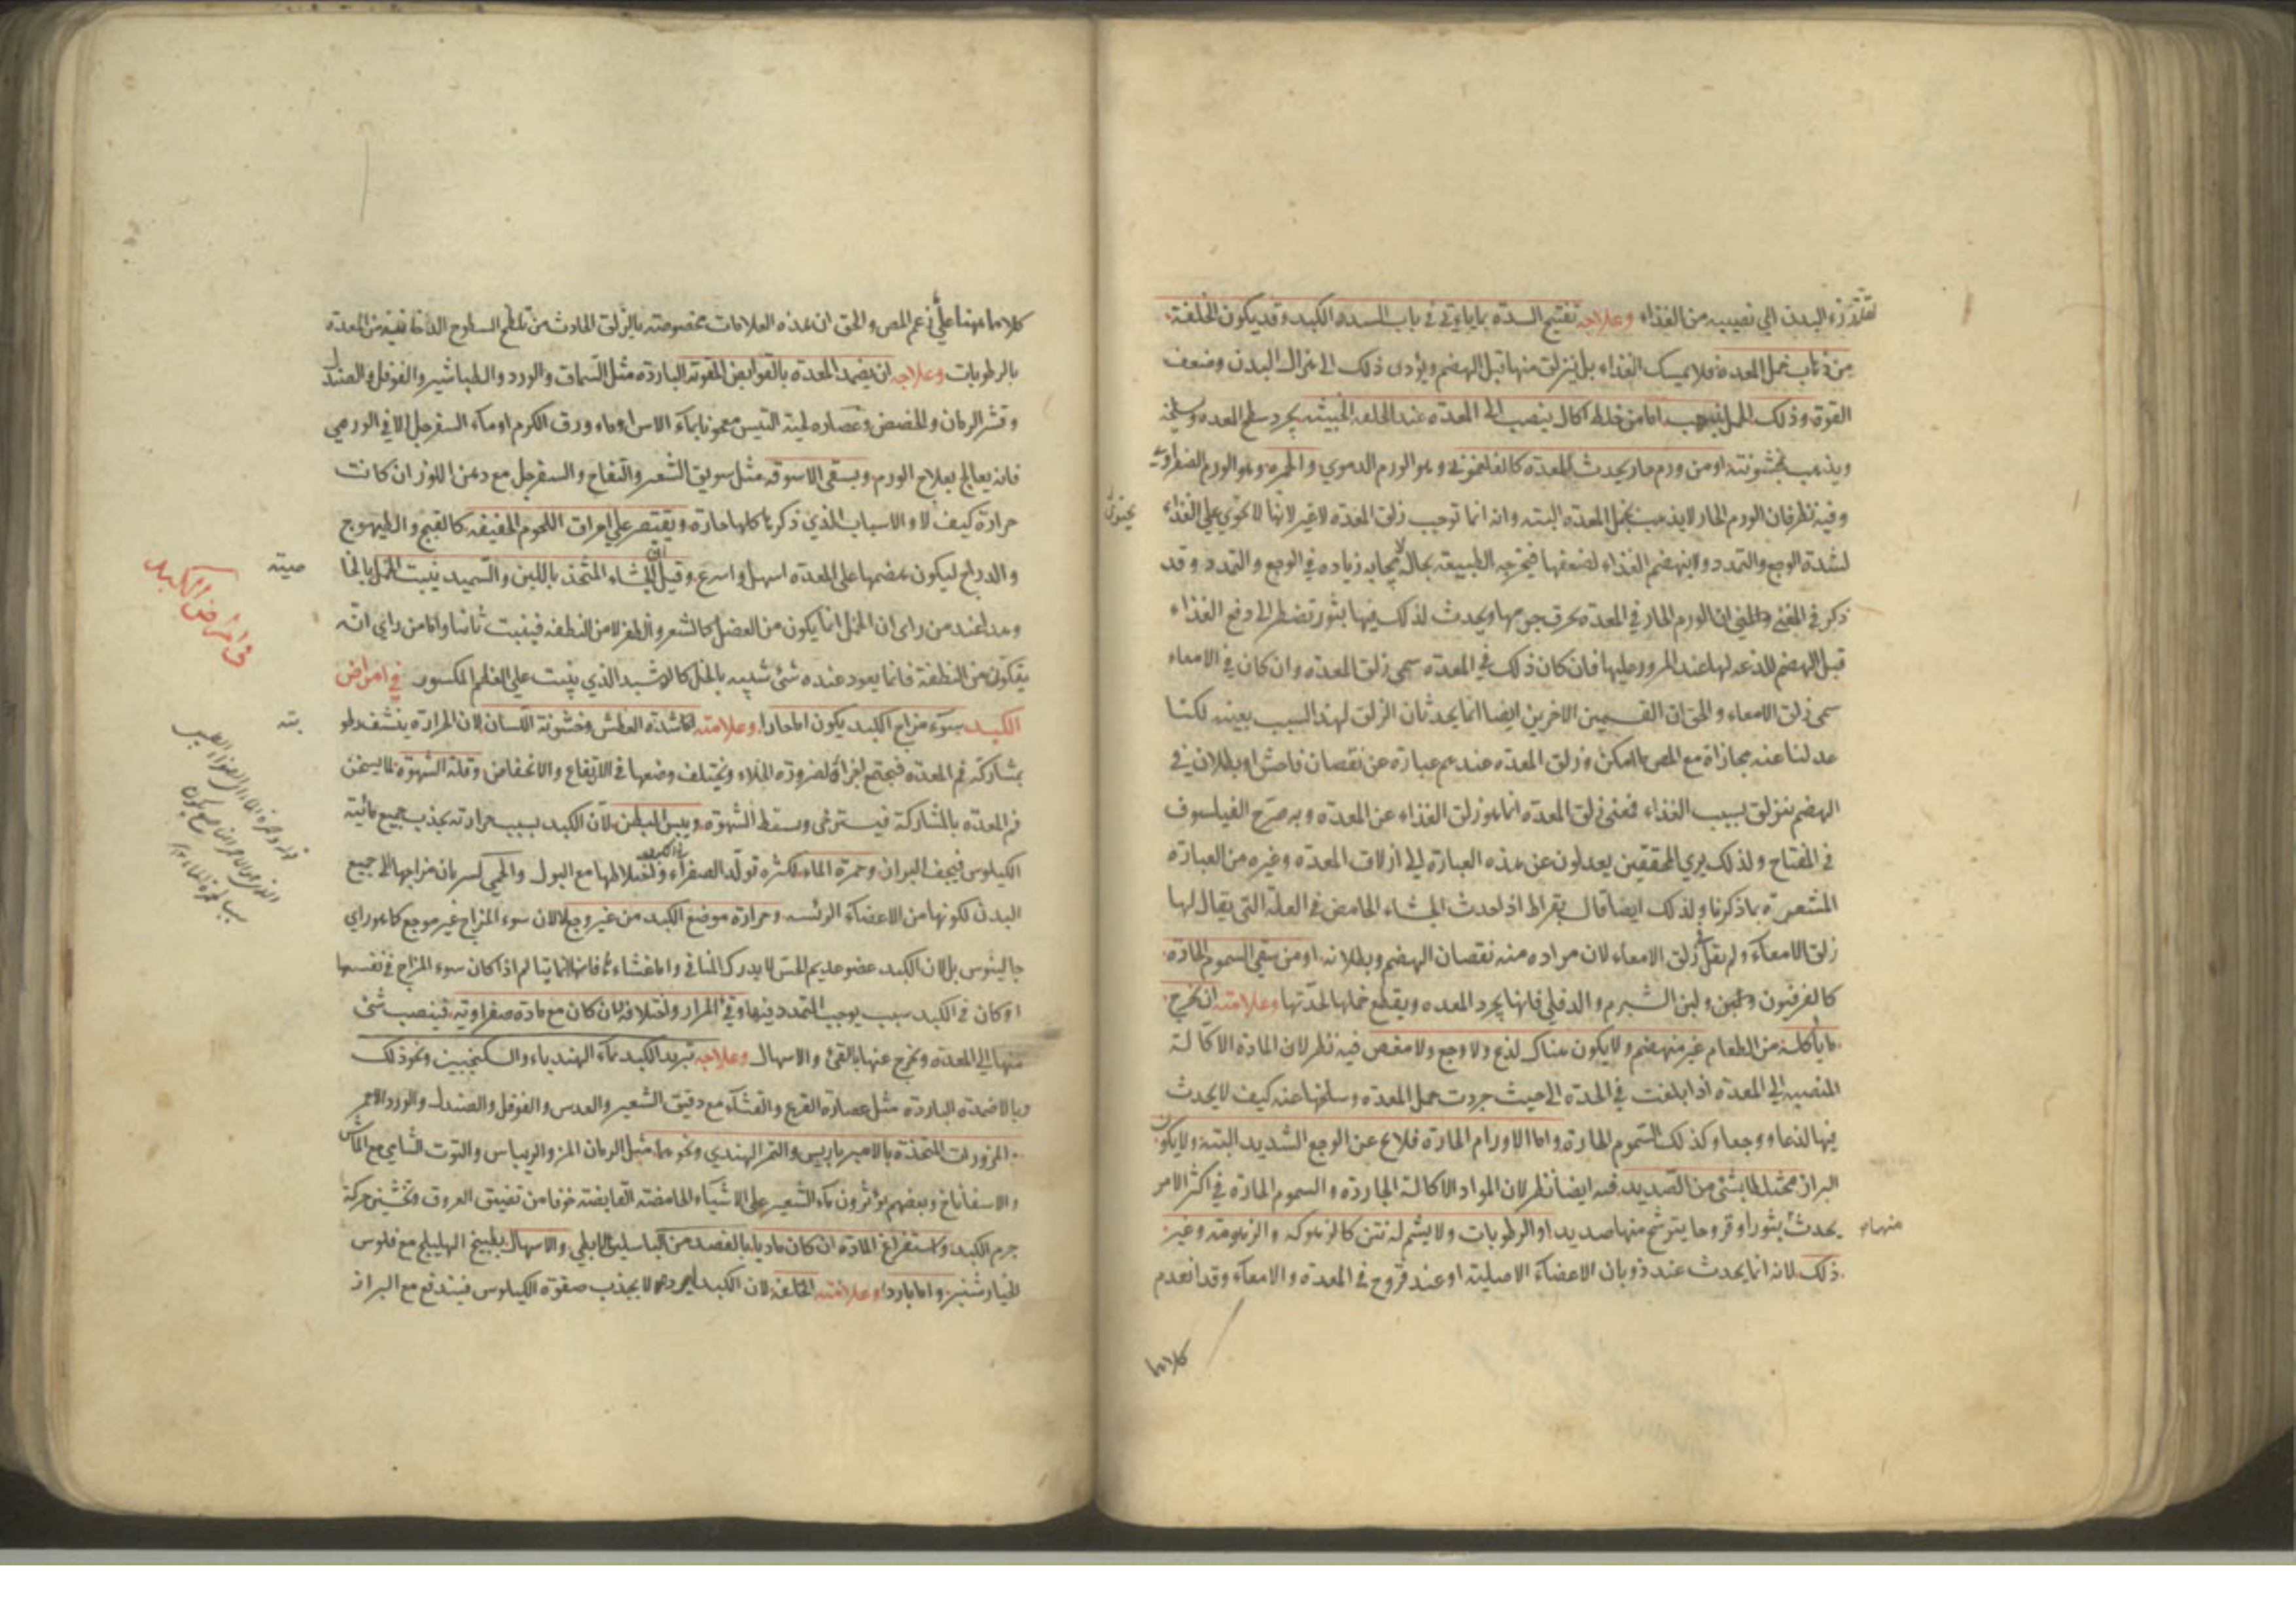 زرء البدن الى نصيبه من الغذاء وعلاجه تفتيح السدة بما ياتي في باب السدة الكبد وقد يكون الخلفة
من ذهاب خمل المعدة فلا يمسك الغذاء بل ينزلق منها قبل الهضم ويؤدى ذلك الى هزال البدن وضعف
القوة وذلك اما من خلط اكال ينصب الى المعدة عند الخلفة الخبيثة يجرد سطح المعدة
ويذهب بخشونته او من ورم حار يحدث بالمعدة كالفلغموني وهو الورم الدموي والحمرة وهو الورم الصفراوي
وفيه نظر فان الورم الحار لا يذهب بخمل المعدة البتة وانه انما توجب زلق المعدة لا غير لانها لا تحوي على الغذاء
يحتوى
لشدة الوجع والتمدد ولا ينهضم الغذاء لضعفها فيخرجه الطبيعة بحاله زيادة في الوجع والتمدد وقد
ذكر في المغني ان الورم الحار في المعدة يحرق جرمها ويحدث لذلك فيها بثور تضطر الى دفع الغذاء
قبل الهضم للذعه لها عند المرور عليها فان كان ذلك في المعدة سمى زلق المعدة وان كان في الامعاء
سمى زلق الامعاء والحق ان القسمين الاخرين ايضا انما يحدثان الزلق لهذا السبب بعينه لكنا
عدلنا عنه مجازاة مع المص ما امكن وزلق المعدة عندهم عبارة عن نقصان فاحش او بطلان في
الهضم بنزلق بسبب الغذاء فمعنى زلق المعدة انما هو زلق الغذاء عن المعدة وبه صرح الفيلسوف
في المفتاح ولذلك يرى المحققين يعدلون عن هذه العبارة الى ازلاق المعدة وغيره من العبارة
المشعرة بما ذكرنا ولذلك ايضا قال بقراط اذا حدث الجشاء الحامض في العلة التي يقال لها
زلق الامعاء ولم يقل زلق الامعاء لان مراده منه نقصان الهضم وبطلانه او من سقي السموم الحادة
كالفرفيون ولبن الشبرم والدفلي فانها يجرد المعدة ويقطع خملها لحدتها وعلامته ان يخرج
ما يأكله من الطعام غير منهضم ولا يكون هناك لذع ولا وجع ولا مغص فيه نظر لان المادة الاكالة
المنصبة الى المعدة اذا بلغت في الحدة الى حيث جردت خمل المعدة وسلخها عنه كيف لا يحدث
فيها لذعا ووجعا وكذلك السموم الحارة واما الاورام الحارة فلاع عن الوجع الشديد البتة ولا يكون
البراز مختلطا بشئ من الصديد فيه ايضا نظر لان المواد الاكالة الحاردة والسموم الحادة في اكثر الامر
يحدث بثورا وقروحا يترشح منها صديد او الرطوبات ولا يشم له نتن كالزهوكة والزهومة وغير
منهاه
ذلك لانه انما يحدث عند ذوبان الاعضاء الاصلية او عند قروح في المعدة والامعاء وقد انعدم
كلاهما
كلاهما ههنا على زعم المص والحق ان هذه العلامات مخصوصة بالزلق الحادث من السطوح الداخلية من المعدة
بالرطوبات وعلاجه ان يضمد المعدة بالقوابض المقوية الباردة مثل السماق والورد والطباشير والفوفل والصندل
وقشر الرمان والحضض وعصارة لحية التيس معجونا بماء الاس او ماء ورق الكرم او ماء السفرجل الا في الورمي
فانه يعالج بعلاج الورم ويسقى الاسوقة مثل سويق الشعير والتفاح والسفرجل مع دهن اللوز ان كانت
حرارة كيف لا والاسباب الذي ذكرنا كلها حارة ويقتصر على امراق اللحوم الخفيفة كالقبج والطيهوج
والدراج ليكون هضمها على المعدة اسهل واسرع وقيل ان الحشاء المتخذ باللبن والسميد ينبت الخمل بالخا
صية
وهذا عند من راى ان الخمل انما يكون من الفضل كالشعر والظفر لا من النطفة فينبت ثانيا واما من راى انه
يتكون من النطفة فانما يعود عنده شئ شبيه بالخمل كالوشبد الذي ينبت على العظم المكسور في امراض
في امراض الكبد
الكبد سوء مزاج الكبد يكون اما حارا وعلامته اما شدة العطش وخشونة اللسان لان الحرارة ينشف رطو
بته
بمشاركة فم المعدة فيجتمع اجزاؤه لضرورة الخلاء ويختلف وضعها في الارتفاع والانخفاض وقلة الشهوة لما يسخن
فم المعدة بالمشاركة فيسترخى ويسقط الشهوة ويبس البطن لان الكبد بسبب حرارته يجذب جميع مائية
الكيلوس فيجف البراز وحمرة الماء لكثرة تولد الصفراء واختلاطها مع البول والحمى لسريان مزاجها الى جميع
البدن لكونها من الاعضاء الرئيسة وحرارة موضع الكبد من غير وجع لان سوء المزاج غير موجع كما هو راى
جالينوس بل لان الكبد عضو عديم الحس لا يدرك المنافي واما غشاءها فانها يتالم اذا كان سوء المزاج في نفسها
او كان في الكبد سبب يوجب التمدد فيها وقئ المرار واختلافه ان كان مع مادة صفراوية فينصب شئ
منها الى المعدة ويخرج عنها بالقئ والاسهال وعلاجه تبريد الكبد بماء الهندباء والسكنجبين ونحو ذلك
وبالاضمدة الباردة مثل عصارة القرع والقثاء مع دقيق الشعير والعدس والفوفل والصندل والورد الاحمر
المزورات المتخذة بالامير باريس والتمر الهندي ونحوها مثل الرمان المز والريباس والتوت الشامي مع الماش
والاسفاناخ وبعضهم يؤثرون ماء الشعير على الاشياء الحامضة القابضة خوفا من تضييق العروق وتخشين حركة
جرم الكبد واستفراغ المادة ان كان ماديا بالفصد من الباسليق الابطي والاسهال بطبيخ الهليلج مع فلوس
الخيارشنبر واما باردا وعلامته الخلفة لان الكبد لا يجذب صفوة الكيلوس فيندفع مع البراز